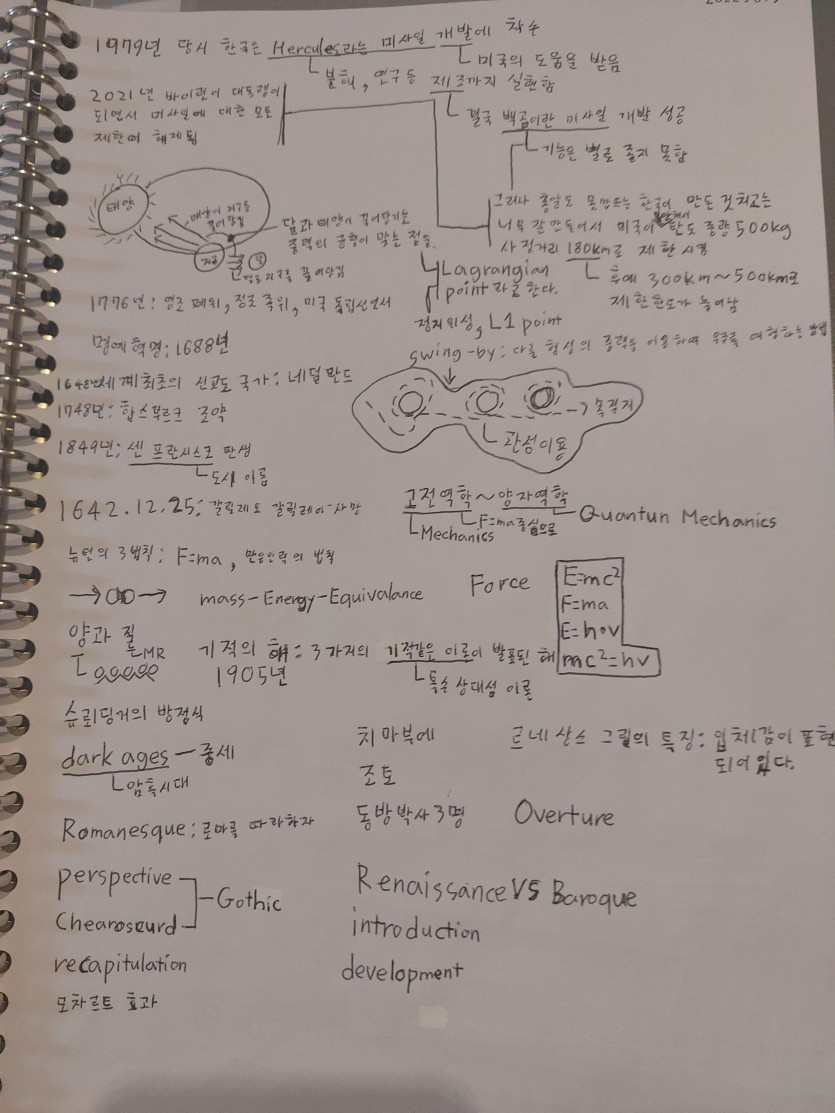 1979년 당시 한국은 Hercules라는 미사일 개발에 착수
미국의 도움을 받음
분해, 연구등 제조까지 실현함
2021년 바이런이 대통령이
되면서 미사일에 대한 모든
제한이 해제됨
결국 백곰이란 미사일 개발 성공
기능은 별로 좋지 못함
그러나 총알도 못만드는 한국이 만든 것치고는
너무 잘 만들어서 미국이 탄도 중량 500kg
사정거리 180km로 제한시킴
후에 300km~500km로
제한한도가 늘어남
태양
태양이 지구를
끌어당김
지구
달
달과 태양이 끌어당기는
중력의 균형이 맞는 점
달이 지구를 끌어당김
Lagrangian
point라고 한다.
정지위성, L1 point
1776년: 영조 폐위, 정조 즉위, 미국 독립선언서
명예혁명: 1688년
swing-by: 다른 행성의 중력을 이용하여 우주를 여행하는 방법
1648년세계최초의 신교도 국가: 네덜란드
목적지
관성이용
1748년: 합스부르크 조약
1849년: 샌 프란시스코 탄생
도시 이름
1642.12.25: 갈릴레오 갈릴레이 사망
고전역학~양자역학
Mechanics
F=ma중심으로
Quantun Mechanics
뉴턴의 3법칙: F=ma, 만유인력의 법칙
mass-Energy-Equivalance
Force
E=mc²
F=ma
E=h•v
mc²=hv
양과 질
MR
기적의 해: 3가지의 기적같은 이론이 발표된 해
1905년
특수 상대성 이론
슈뢰딩거의 방정식
dark ages-중세
암흑시대
치마부에
르네산스 그림의 특징: 입체감이 표현
되어있다.
조토
Romanesque: 로마를 따라하자
동방박사 3명
Overture
perspective
Chearoscurd
Gothic
Renaissance VS Baroque
introduction
recapitulation
development
모차르트 효과